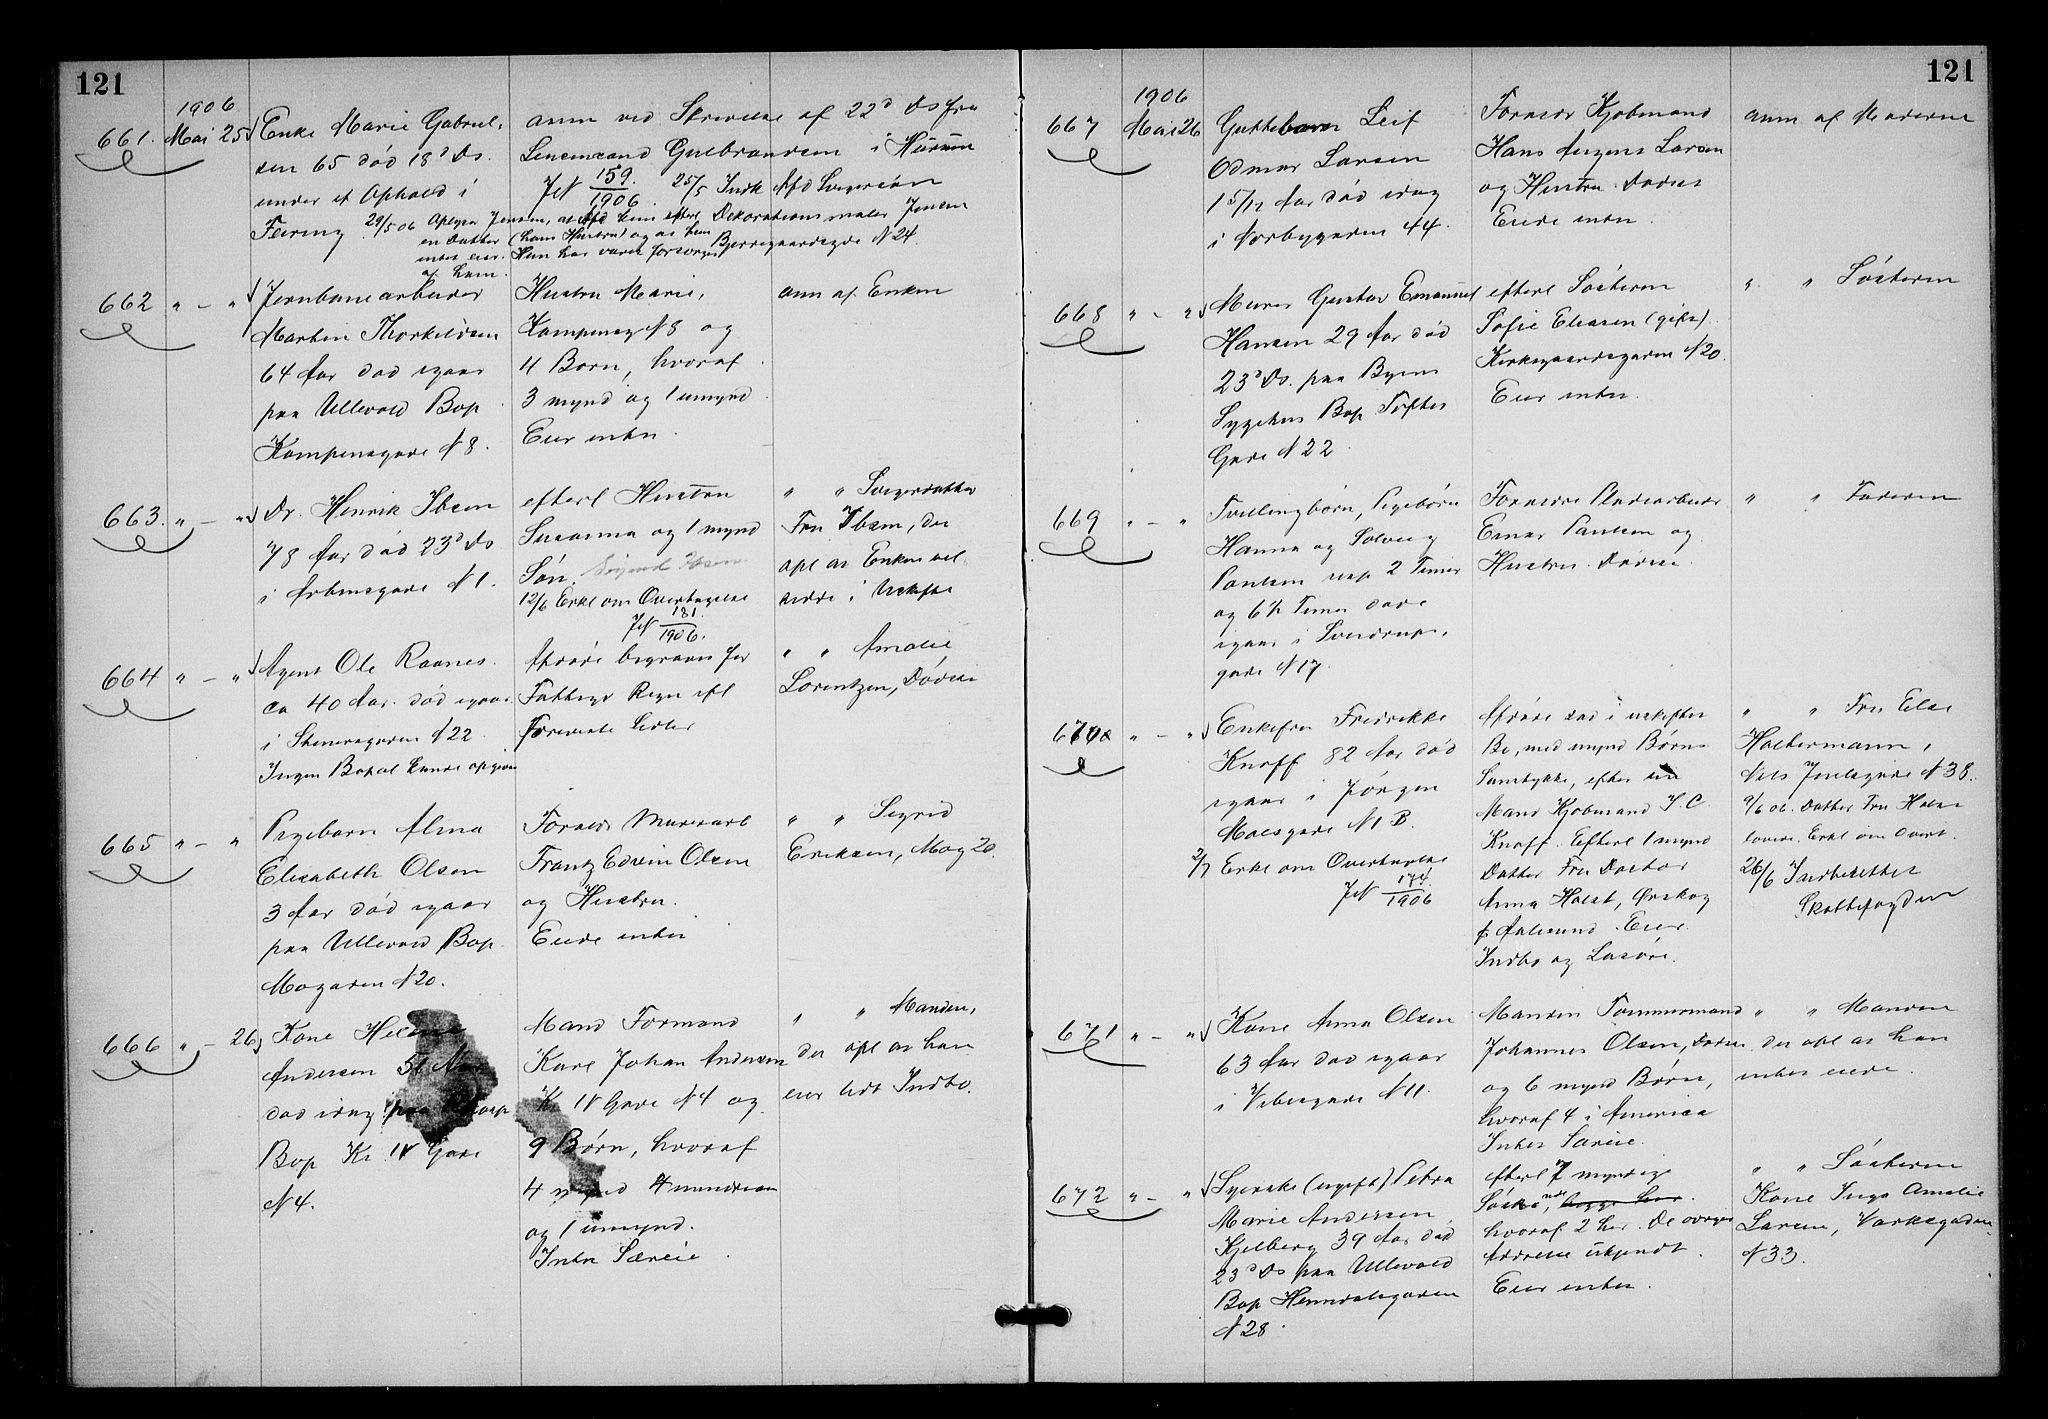 121
1906
661. Mai 25 Enke Marie Gabriel-
sen 65 død 18d Ds.
under et Ophold i
Feiring
anm ved Skrivelse af 22d Ds fra
Lensmand Gulbrandsen i Hurum
JN 159/1906. 25/5 Indk Afd Svigersøn
29/5 06 Opgav Jensen, at Afd kun efterl Dekorationsmaler Jensen
en Datter (hans Hustru) og at hun Bjerregaardsgde N 24.
intet eier. Hun har været forsørget
af ham.
662 " - " Jernbanearbeider
Martin Thorkildsen
64 Aar død igaar
paa Ullevold Bop
Kampensgade N 8.
Hustru Marie,
Kampensg N 8 og
4 Børn, hvoraf
3 mynd og 1 umynd
Eier intet.
anm af Enken
663. " - " Dr. Henrik Ibsen
78 Aar død 23d Ds
i Arbinsgade N 1.
efterl Hustru
Susanna og 1 mynd
Søn. Sigurd Ibsen
12/6 Erkl om Overtagelse
JN 181/1906.
" " Svigerdatter
Fru Ibsen, der
opl at Enken vil
sidde i Uskifte
664 " - " Agent Ole Raanes
ca 40 Aar død igaar
i Stenersgaden N 22
Ingen Bopæl kunde opgives
Afdøde begraves for
Fattiges Regn ifl
Foreviste Sedler
" " Amalie
Lorentzen, Døde
665 " - " Pigebarn Alma
Elisabeth Olsen
3 Aar død igaar
paa Ullevold Bop
Mogaden N 20.
Forældre Murerarb
Frantz Edvin Olsen
og Hustru.
Eiede intet
" " Sigrid
Eriksen, Mog 20.
666 " - 26 Kone Helene
Andersen 51 Aar
død idag paa
Bop Kr. IV Gade
N 4.
Mand Formand
Karl Johan Andersen
Kr IV Gade N 4 og
9 Børn, hvoraf
4 mynd 4 mindreaar
og 1 umynd.
Intet Særeie.
" " Manden,
der opl at han
eier lidt Indbo.
121
1906
667 Mai 26 Guttebarn Leif
Odmar Larsen
1 5/12 Aar død idag
i Norbygaden 44.
Forældre Kjøbmand
Hans Jørgens Larsen
og Hustru
Eiede intet
anm af Moderen
668 " - " Murer Gustav Emanuel
Hansen 29 Aar død
23d Ds. paa Byens
Sygehus Bop Toftes
Gade N 22
efterl Søsteren
Sofie Eliasen (gift)
Kirkegaardsgaden N 20.
Eier intet.
" " Søsteren
669 " - " Tvillingbørn, Pigebørn
Hanna og Solveig
Paulsen resp 2 Timer
og 6½ Timer døde
igaar i Sverdrups-
gade N 17
Forældre Pladsarbeider
Einar Paulsen og
Hustru
" " Faderen
670 " - " Enkefru Fredrikke
Knoff 82 Aar død
igaar i Jørgen
Moesgade N 1 B.
2/7 Erkl om Overtagelse
JN 174/1906
Afdøde sad i uskiftet
Bo, med mynd Børns
Samtykke, efter sin
Mand Kjøbmand I. C.
Knoff. Efterl 1 mynd
Datter Fru Doktor
Anna Holst, Ørskog
pr Aalesund. Eier
Indbo og Løsøre.
" " Fru Else
Holtermann,
Nils Juelsgade N 38.
9/6 06. Datter Fru Holst
lovede Erkl om Overt.
26/6 Indberettet
Skattefogden
671 " - " Kone Anna Olsen
63 Aar død igaar
i Vibesgade N 11.
Manden Tømmermand
Johannes Olsen,
og 6 mynd Børn,
hvoraf 4 i America
Intet Særeie.
" " Manden
der opl at han
intet eiede.
672 " - " Syerske (ugift) Petra
Marie Andersen
Kjelberg 39 Aar død
23d Ds paa Ullevold
Bop Heimdalsgaden
N 28.
efterl 7 myndige
Søskende, begge her.
hvoraf 2 her. De øvriges
Adresse ukjendt.
Eier intet.
" " Søsteren
Kone Inga Amalie
Larsen,
N 33.